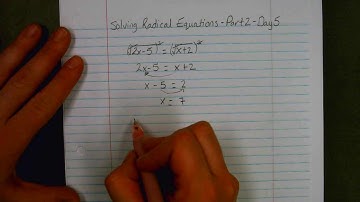 Solving Radical Equations - Part 2 - Day 5
(√2x-5)² = (√x+2)²
2x-5 = x+2
x - 5 = 2
x = 7